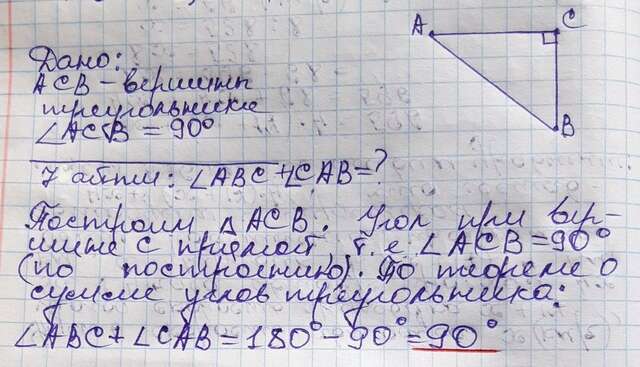 A C
B
Дано:
ACB - вершины
треугольника
∠ACB = 90°
Найти: ∠ABC + ∠CAB = ?
Построим △ ACB. Угол при вер-
шине C прямой, т.е. ∠ACB = 90°
(по построению). По теореме о
сумме углов треугольника:
∠ABC + ∠CAB = 180° - 90° = 90°